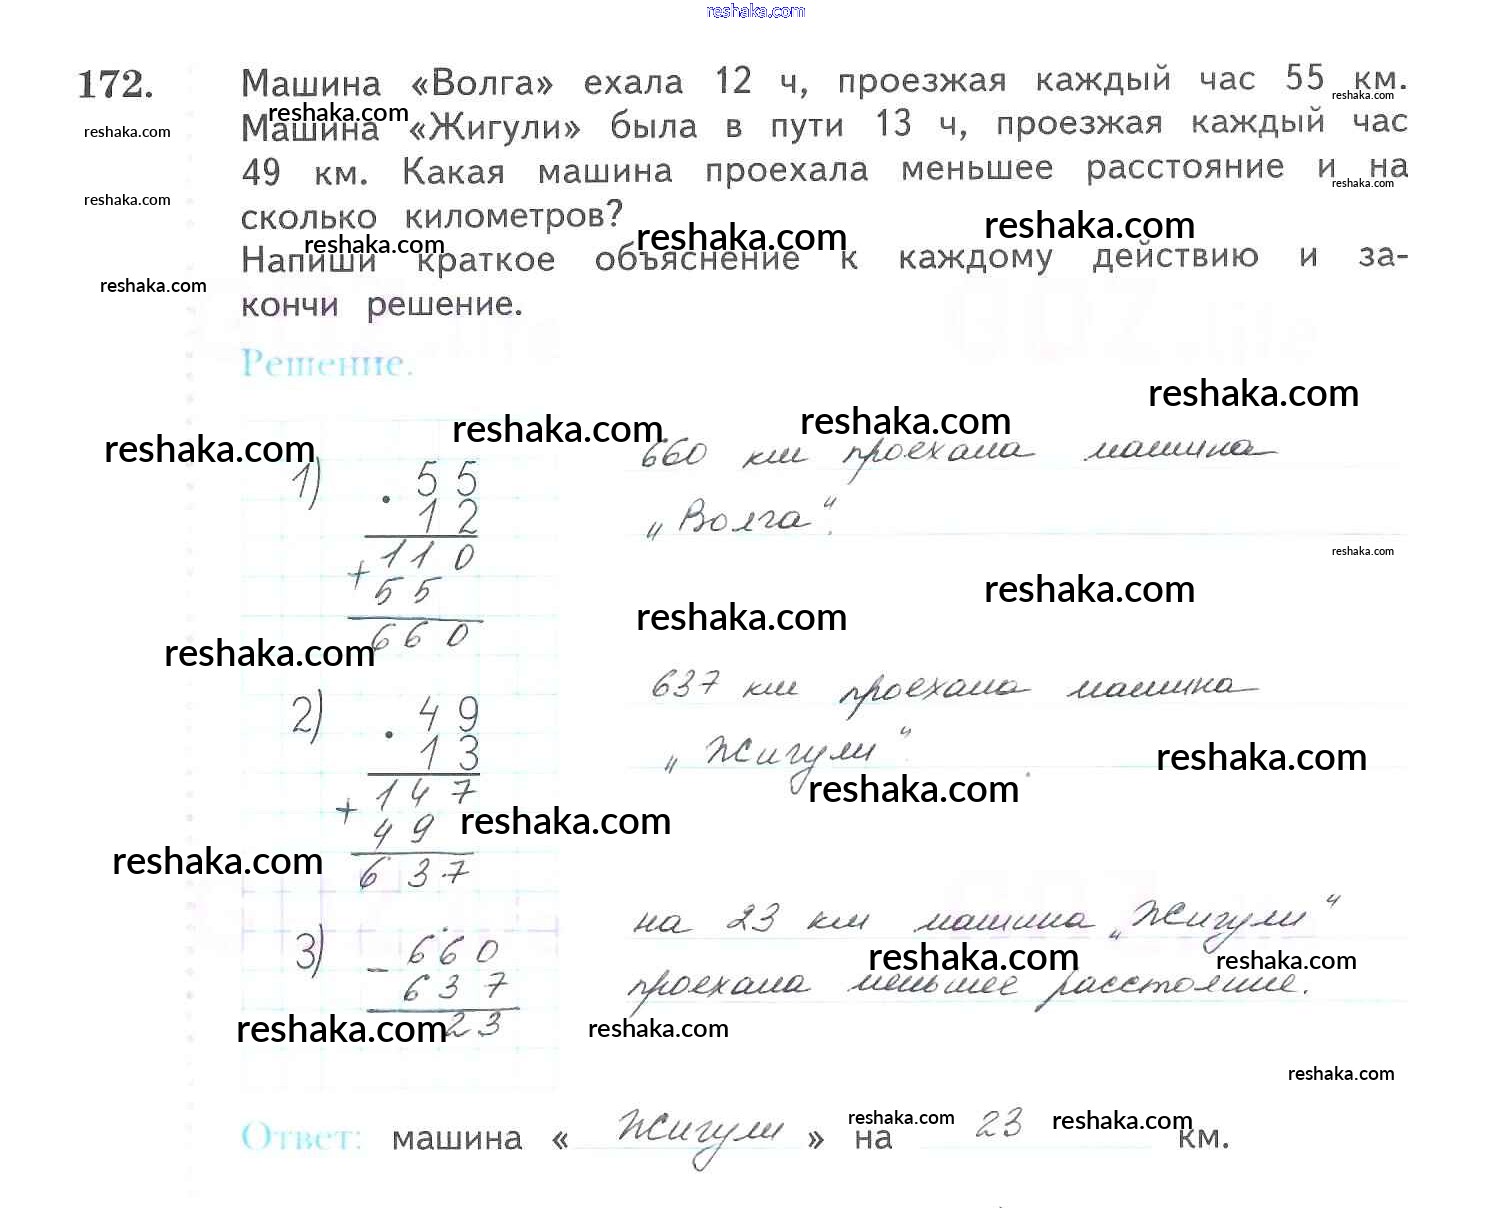 reshaka.com
172. Машина «Волга» ехала 12 ч, проезжая каждый час 55 км.
reshaka.com reshaka.com
reshaka.com Машина «Жигули» была в пути 13 ч, проезжая каждый час
49 км. Какая машина проехала меньшее расстояние и на
reshaka.com reshaka.com
сколько километров?
reshaka.com reshaka.com reshaka.com
Напиши краткое объяснение к каждому действию и за-
reshaka.com
кончи решение.
Решение.
reshaka.com
reshaka.com reshaka.com reshaka.com
660 км проехала машина
1) . 55
12
„Волга“.
110
reshaka.com
+
55
reshaka.com reshaka.com
660
reshaka.com
637 км проехала машина
2) . 49
13
„Жигули“.
reshaka.com
147
reshaka.com
+
49
reshaka.com
reshaka.com
637
на 23 км машина „Жигули“
3) - 660
reshaka.com reshaka.com
637
проехала меньшее расстояние.
23
reshaka.com reshaka.com
reshaka.com
reshaka.com reshaka.com
Ответ: машина « Жигули » на 23 км.